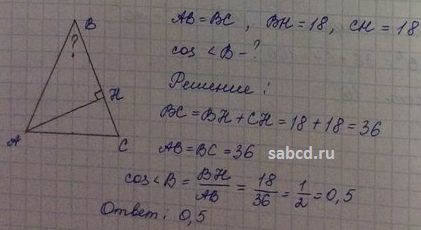 B
?
H
A
C
AB = BC , BH = 18, CH = 18
cos < B - ?
Решение :
BC = BH + CH = 18 + 18 = 36
AB = BC = 36
sabcd.ru
cos < B = BH/AB = 18/36 = 1/2 = 0,5
Ответ: 0,5